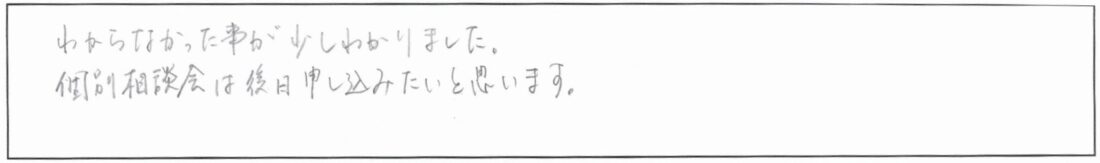 わからなかった事が少しわかりました。
個別相談会は後日申し込みたいと思います。